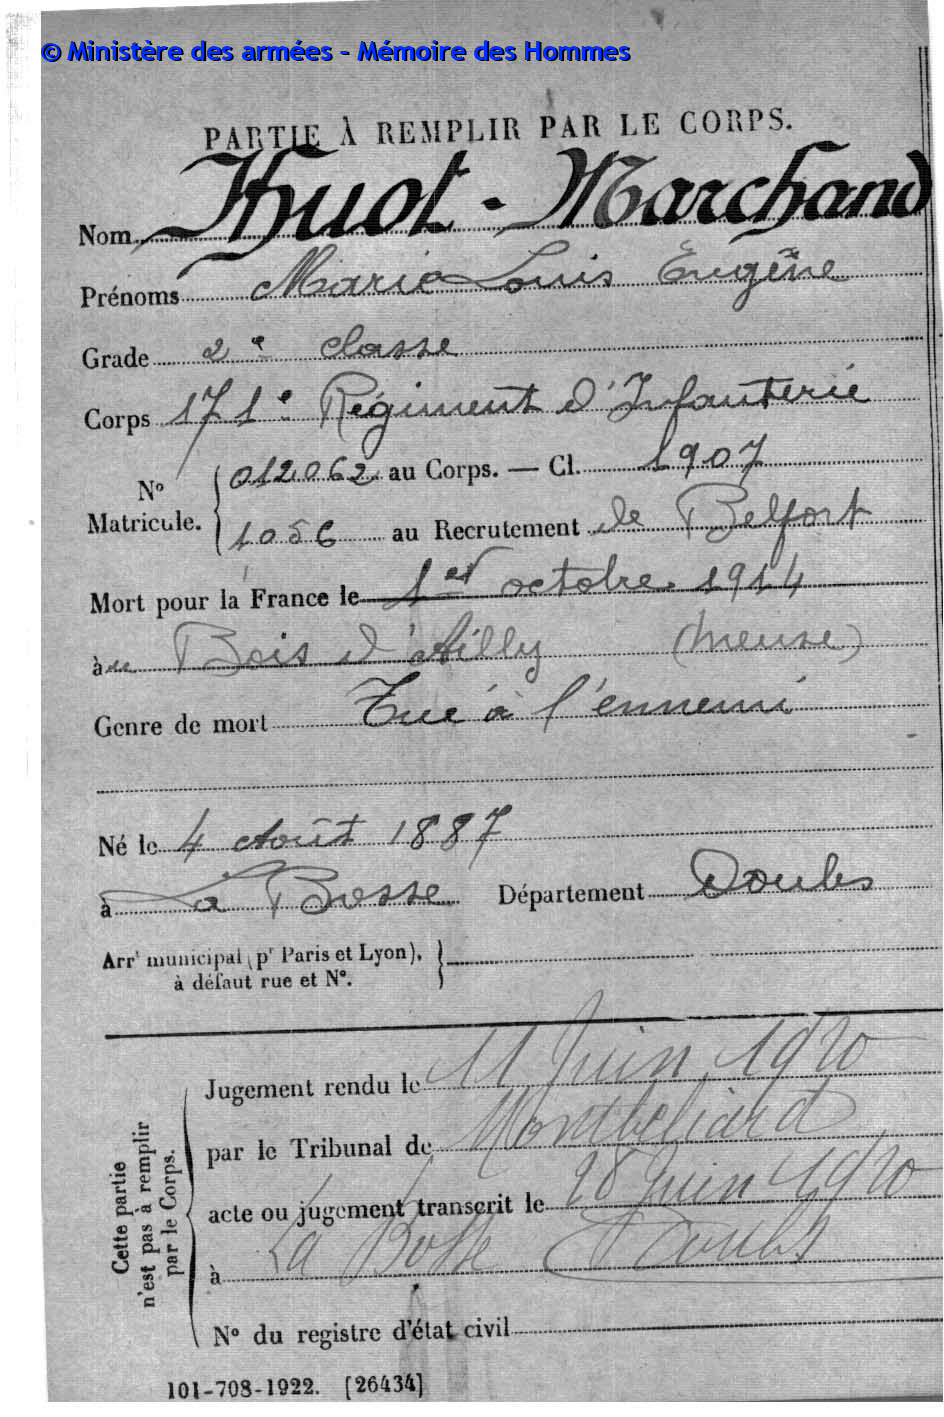 © Ministère des armées - Mémoire des Hommes
PARTIE À REMPLIR PAR LE CORPS.
Nom Huot-Marchand
Prénoms Marie Louis Eugène
Grade 2e classe
Corps 171e Régiment d'Infanterie
No Matricule. { 012062 au Corps. — Cl. 1907
1056 au Recrutement de Belfort
Mort pour la France le 1er octobre 1914
àu Bois d'Ailly (Meuse)
Genre de mort Tué à l'ennemi
Né le 4 Août 1887
à La Bosse Département Doubs
Arrt municipal (pr Paris et Lyon),
à défaut rue et No.
Cette partie
n'est pas à remplir
par le Corps.
Jugement rendu le 11 Juin 1920
par le Tribunal de Montbéliard
acte ou jugement transcrit le 28 Juin 1920
à La Bosse (Doubs)
No du registre d'état civil
101-708-1922. [26434]